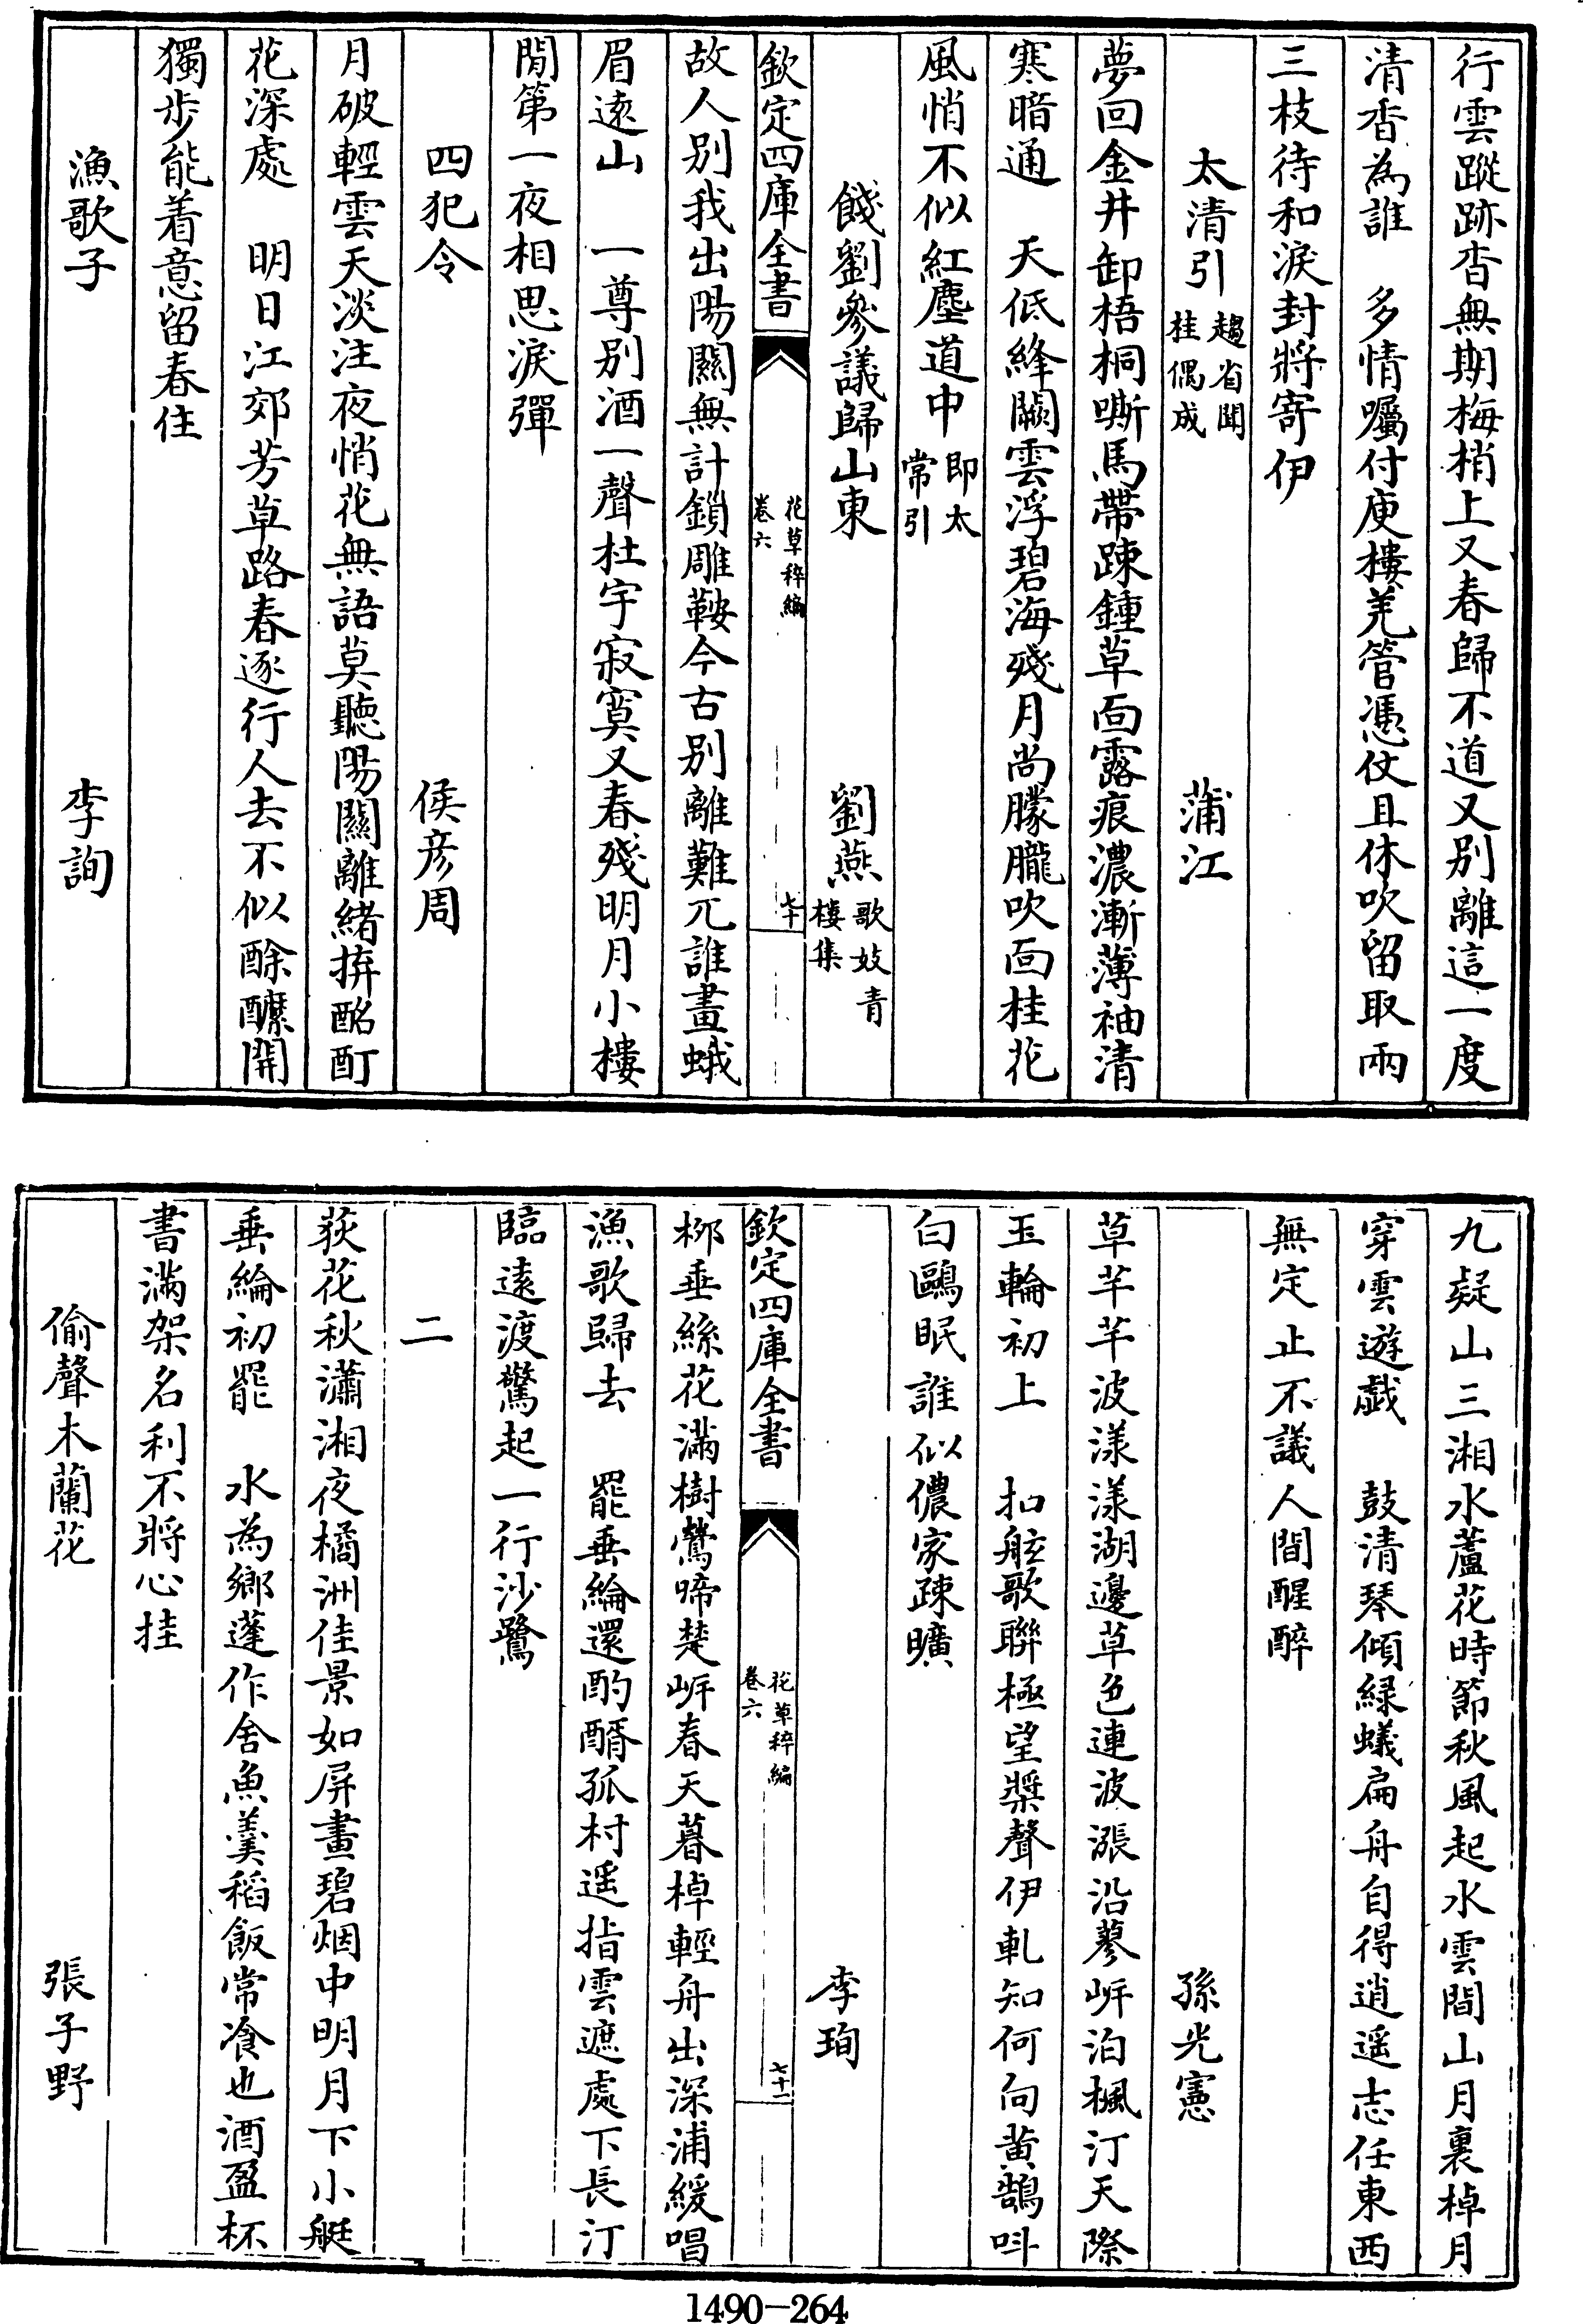 行雲蹤跡杳無期梅梢上又春歸不道又别離這一度
清香為誰　多情囑付庾樓羌管憑仗且休吹留取兩
三枝待和淚封將寄伊
太清引　趨省聞桂偶成　蒲江
夢回金井卸梧桐嘶馬帶踈鍾草面露痕濃漸薄袖清
寒暗通　天低絳闕雲浮碧海殘月尚朦朧吹面桂花
風悄不似紅塵道中　即太常引
餞劉參議歸山東　劉燕　歌妓青樓集
欽定四庫全書　花草稡編卷六　七十
故人别我出陽關無計鎖雕鞍今古别離難兀誰畫蛾
眉遠山　一尊别酒一聲杜宇寂寞又春殘明月小樓
閒第一夜相思淚彈
四犯令　侯彦周
月破輕雲天淡注夜悄花無語莫聽陽關離緒拚酩酊
花深處　明日江郊芳草路春逐行人去不似酴醾開
獨步能着意留春住
漁歌子　李詢
九疑山三湘水蘆花時節秋風起水雲間山月裏棹月
穿雲遊戯　鼓清琴傾緑蟻扁舟自得逍遥志任東西
無定止不議人間醒醉
孫光憲
草芊芊波漾漾湖邊草色連波漲沿蓼岍泊楓汀天際
玉輪初上　扣舷歌聯極望槳聲伊軋知何向黄鵠叫
白鷗眠誰似儂家踈曠
李珣
欽定四庫全書　花草稡編卷六　七十一
栁垂絲花滿樹鶯啼楚岍春天暮棹輕舟出深浦緩唱
漁歌歸去　罷垂綸還酌醑孤村遥指雲遮處下長汀
臨遠渡驚起一行沙鷺
二
荻花秋瀟湘夜橘洲佳景如屏畫碧烟中明月下小艇
垂綸初罷　水為鄉蓬作舍魚羹稻飯常飡也酒盈杯
書滿架名利不將心挂
偷聲木蘭花　張子野
1490-264